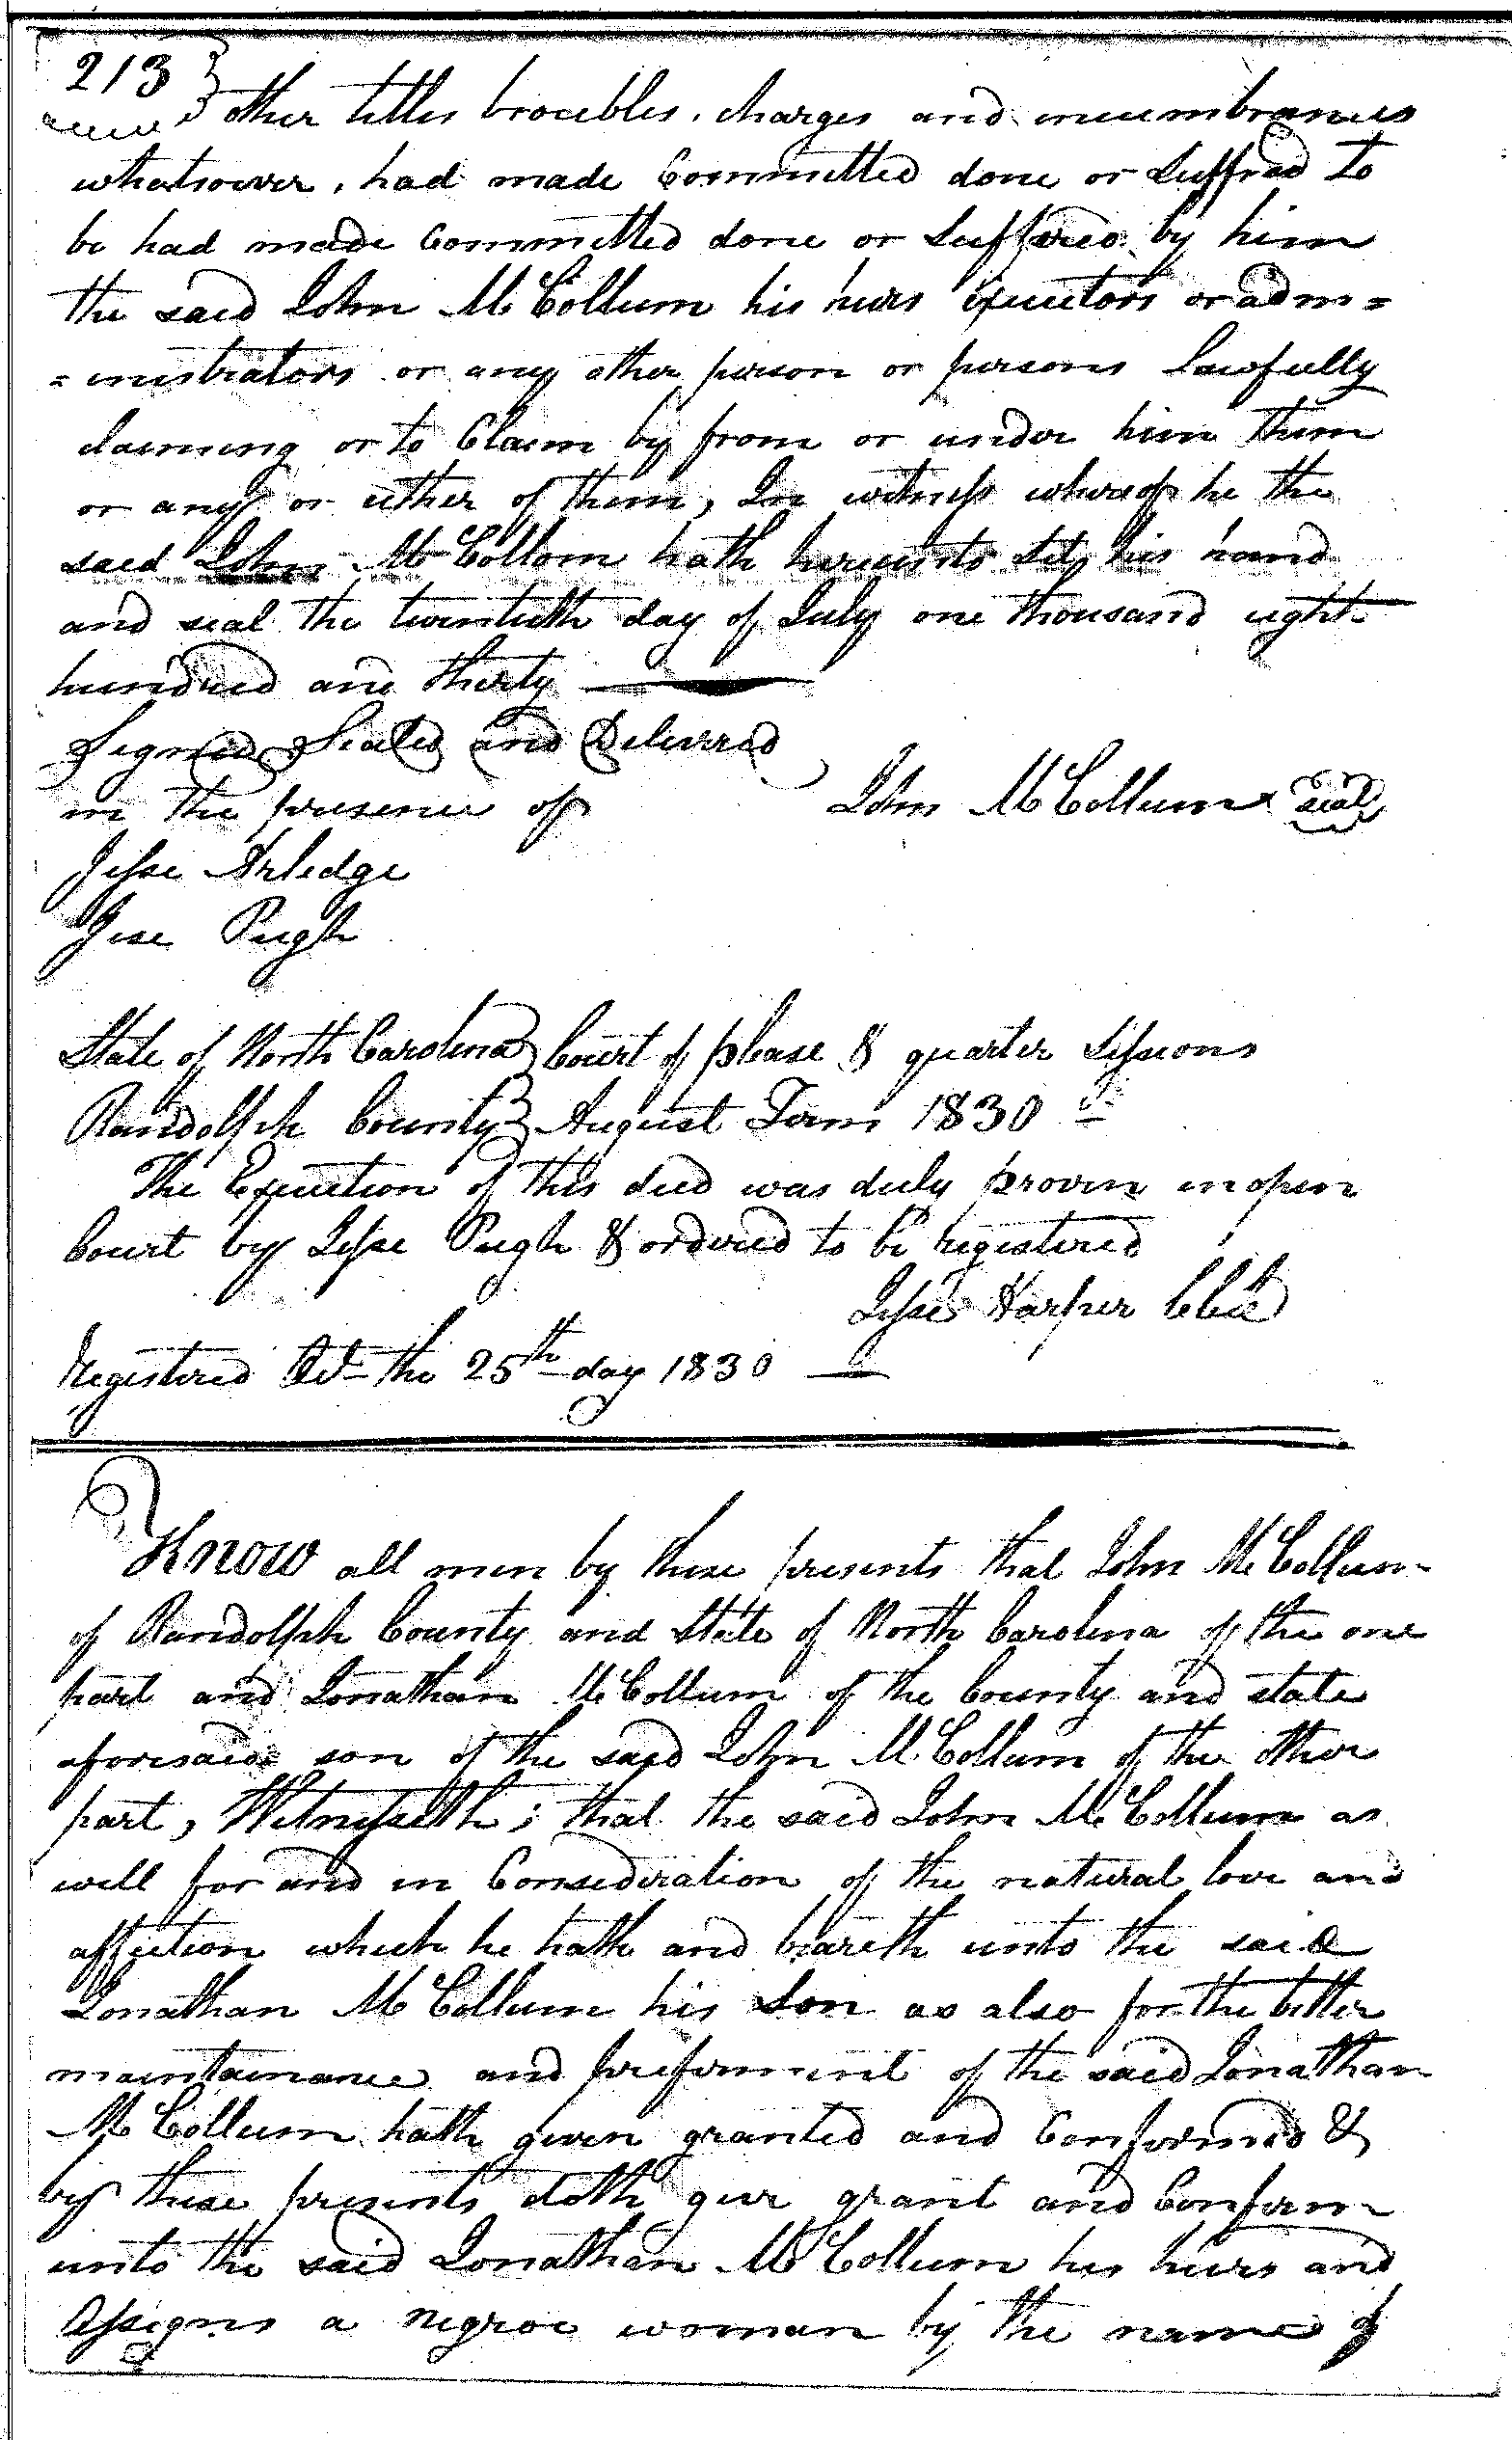 213
other titles troubles, charges and incumbrances
whatsoever, had made Committed done or Suffred to
be had made Committed done or Suffered by him
the said John McCollum his heirs Executors or adm=
=inistrators or any other person or persons Lawfully
claiming or to Claim by from or under him them
or any or either of them, In witness whereof he the
said John McCollom hath hereunto Set his hand
and seal the twentieth day of July one thousand eight
hundred and thirty
Signed Sealed and Delivered
in the presence of
John McCollum seal
Jesse Arledge
Jese Pugh
State of North Carolina Court of please & quarter Sessions
Randolph County August Term 1830
The Execution of this deed was duly proven in open
Court by Jesse Pugh & ordered to be registered
Jesse Harper Clk
Registered Oct the 25th day 1830
Know all men by these presents that John McCollum
of Randolph County and State of North Carolina of the one
part and Jonathan McCollum of the County and state
aforesaid son of the said John McCollum of the other
part, Witnesseth; that the said John McCollum as
well for and in Consideration of the natural love and
affection which he hath and beareth unto the said
Jonathan McCollum his Son as also for the better
maintainance and preferment of the said Jonathan
McCollum hath given granted and Confirmed &
by these presents doth give grant and Confirm
unto the said Jonathan McCollum his heirs and
Assigns a negroe woman by the name of